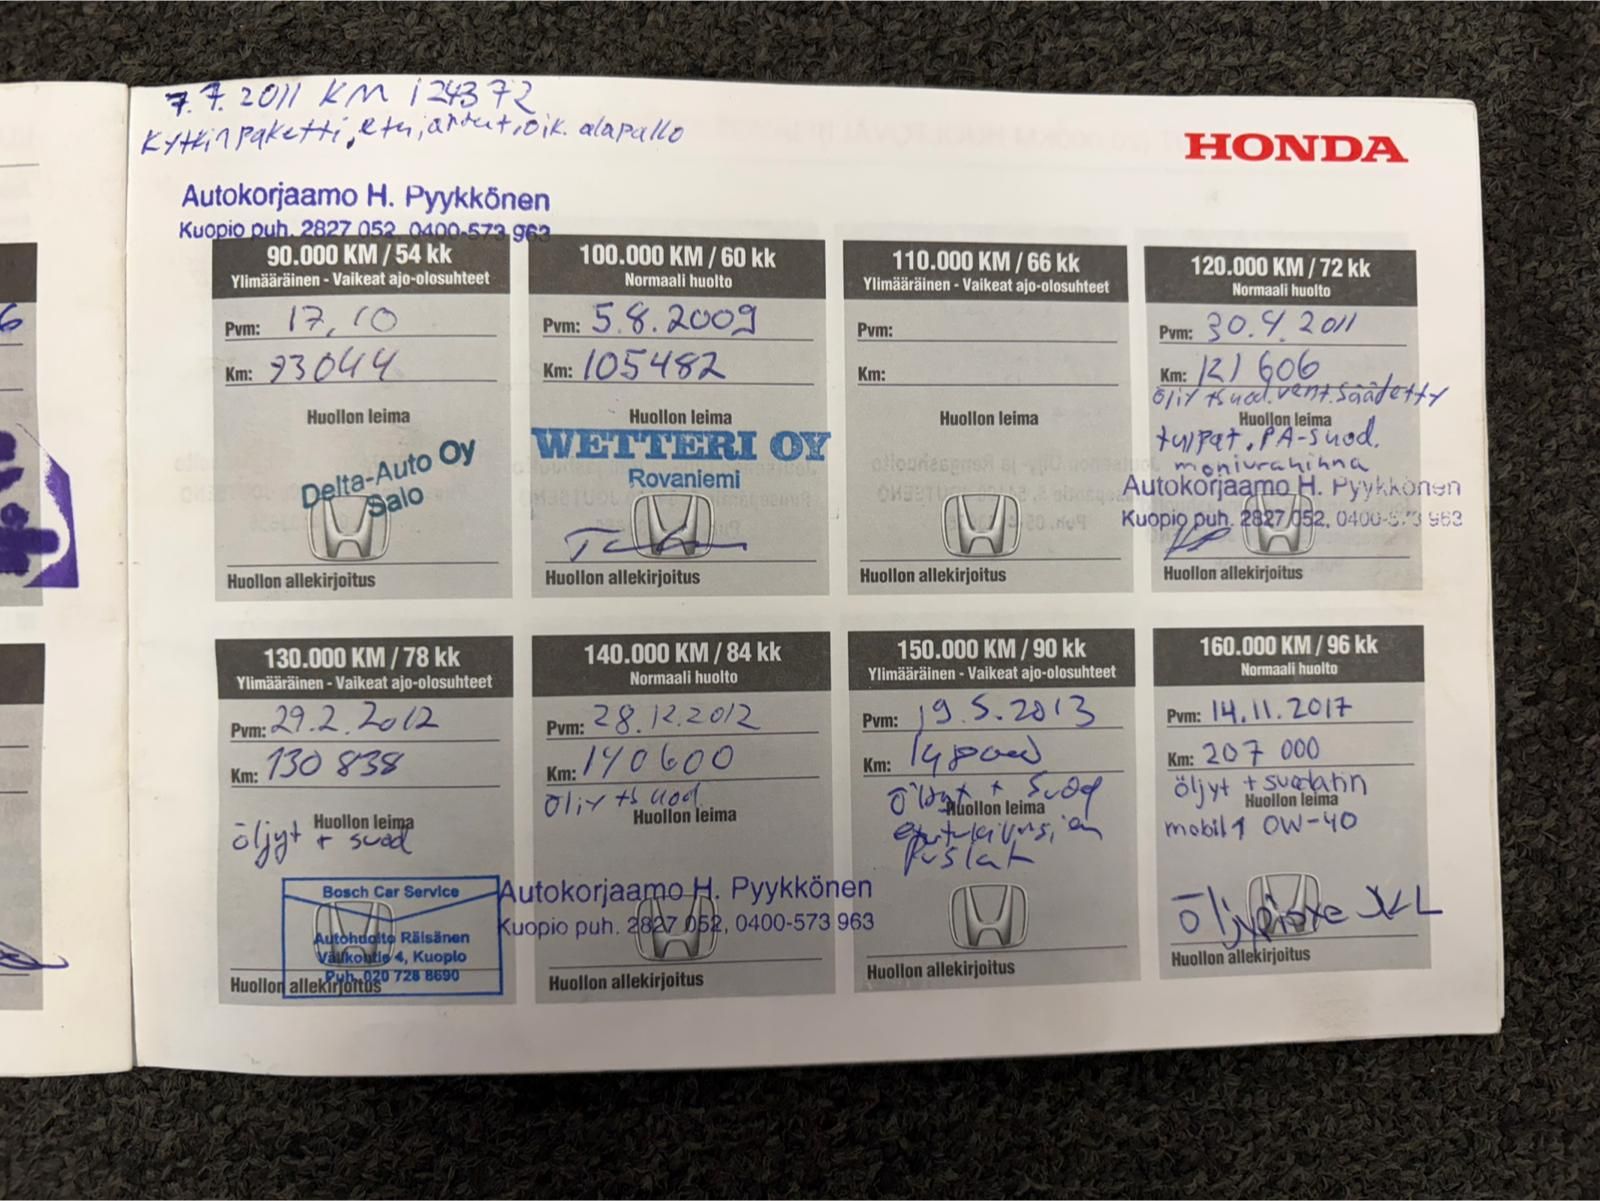 7.7.2011 KM 124372
Kytkinpaketti, etu, oik. alapallo
HONDA
Autokorjaamo H. Pyykkönen
Kuopio puh. 2827 052, 0400-573 963
90.000 KM / 54 kk
Ylimääräinen - Vaikeat ajo-olosuhteet
Pvm: 17.10
Km: 93044
Huollon leima
Delta-Auto Oy
Salo
Huollon allekirjoitus
100.000 KM / 60 kk
Normaali huolto
Pvm: 5.8.2009
Km: 105482
Huollon leima
WETTERI OY
Rovaniemi
Huollon allekirjoitus
110.000 KM / 66 kk
Ylimääräinen - Vaikeat ajo-olosuhteet
Pvm:
Km:
Huollon leima
Huollon allekirjoitus
120.000 KM / 72 kk
Normaali huolto
Pvm: 30.4.2011
Km: 121606
öljy + suod. vent. säädetty
Huollon leima
tulpat, PA-suod.
moniurahihna
Autokorjaamo H. Pyykkönen
Kuopio puh. 2827 052, 0400-573 963
Huollon allekirjoitus
130.000 KM / 78 kk
Ylimääräinen - Vaikeat ajo-olosuhteet
Pvm: 29.2.2012
Km: 130 838
Huollon leima
öljyt + suod
Bosch Car Service
Autohuolto Räisänen
Välikontie 4, Kuopio
Puh. 020 728 8690
Huollon allekirjoitus
140.000 KM / 84 kk
Normaali huolto
Pvm: 28.12.2012
Km: 140600
öljy + suod
Huollon leima
Autokorjaamo H. Pyykkönen
Kuopio puh. 2827 052, 0400-573 963
Huollon allekirjoitus
150.000 KM / 90 kk
Ylimääräinen - Vaikeat ajo-olosuhteet
Pvm: 19.5.2013
Km:
Öljyt + Suod
Huollon leima
puslat
Huollon allekirjoitus
160.000 KM / 96 kk
Normaali huolto
Pvm: 14.11.2017
Km: 207 000
öljyt + suodatin
Huollon leima
mobil 1 0W-40
Öljypiste JKL
Huollon allekirjoitus